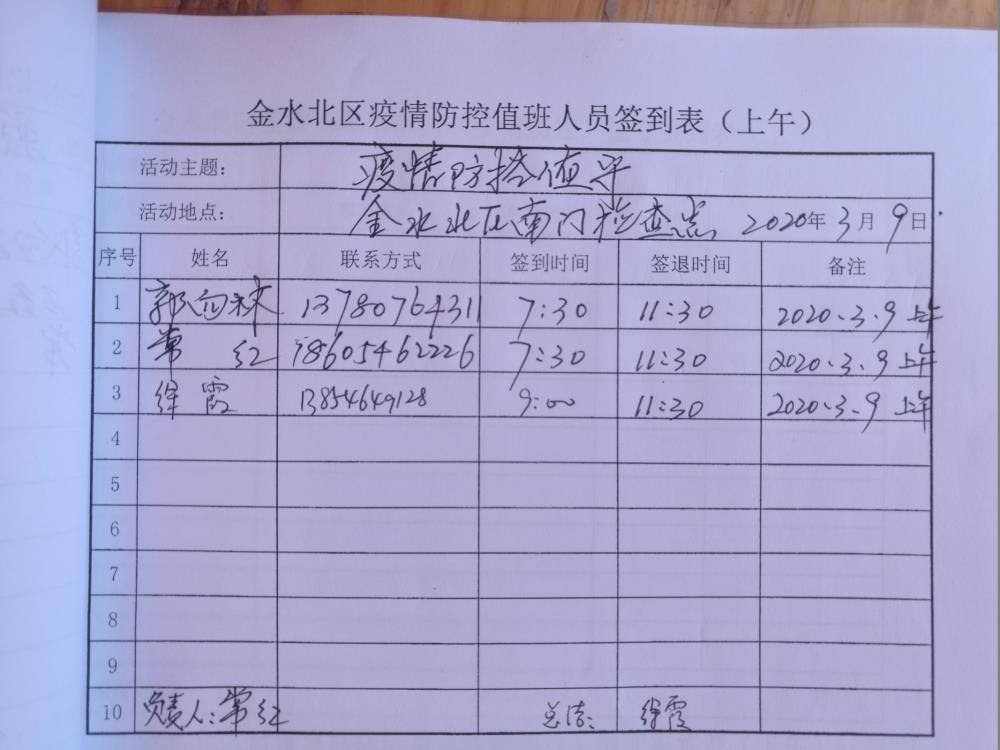 金水北区疫情防控值班人员签到表（上午）
活动主题： 疫情防控值守
活动地点： 金水北区南门检查点 2020年3月9日
序号 姓名 联系方式 签到时间 签退时间 备注
1 郭向林 13780764311 7:30 11:30 2020.3.9上午
2 常红 18605462226 7:30 11:30 2020.3.9上午
3 徐霞 13854649128 9:00 11:30 2020.3.9上午
4
5
6
7
8
9
10 负责人：常红 徐霞